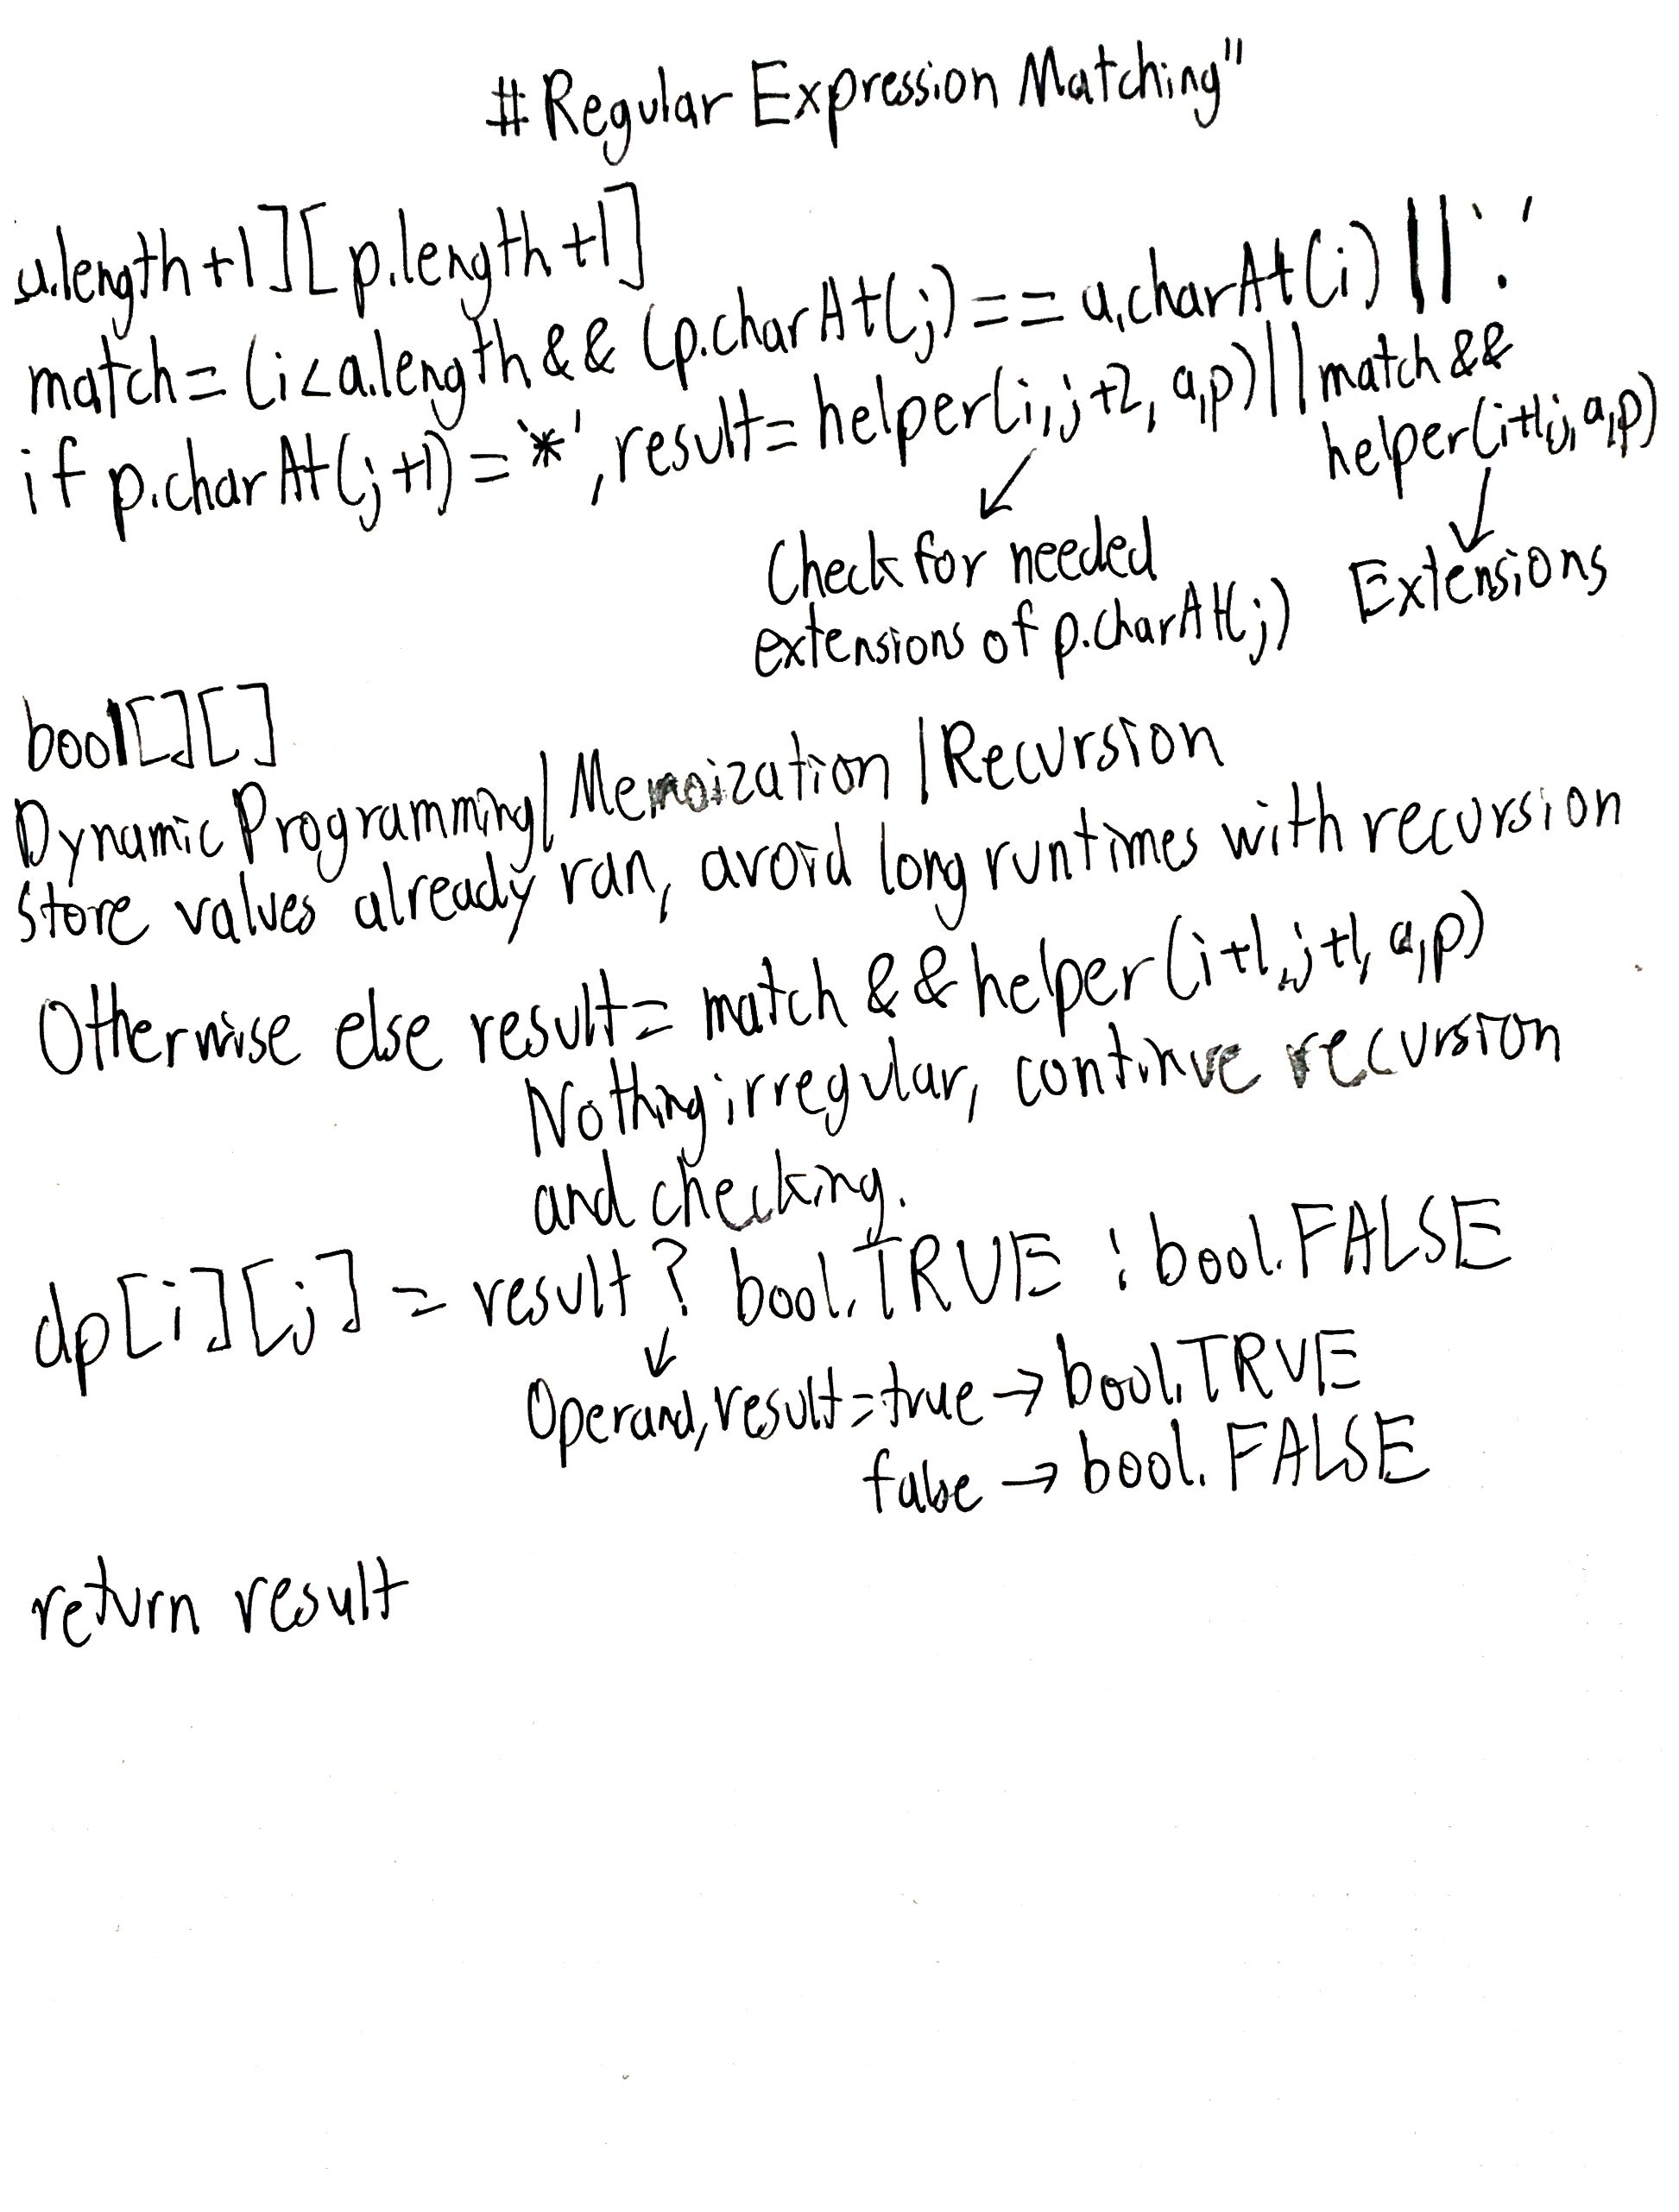 # Regular Expression Matching"
a.length+1][p.length+1]
match=(i<a.length&& (p.charAt(j)==a.charAt(i)||'.'
if p.charAt(j+1)='*', result=helper(i,j+2, a,p)||match&&
helper(i+1,j,a,p)
Check for needed
extensions of p.charAt(j)
Extensions
bool[][]
Dynamic Programming/Memoization/Recursion
Store values already ran, avoid long runtimes with recursion
Otherwise else result= match &&helper(i+1,j+1, a,p)
Nothing irregular, continue recursion
and checking.
dp[i][j] = result ? bool.TRUE : bool.FALSE
Operand, result=true → bool.TRUE
false → bool.FALSE
return result